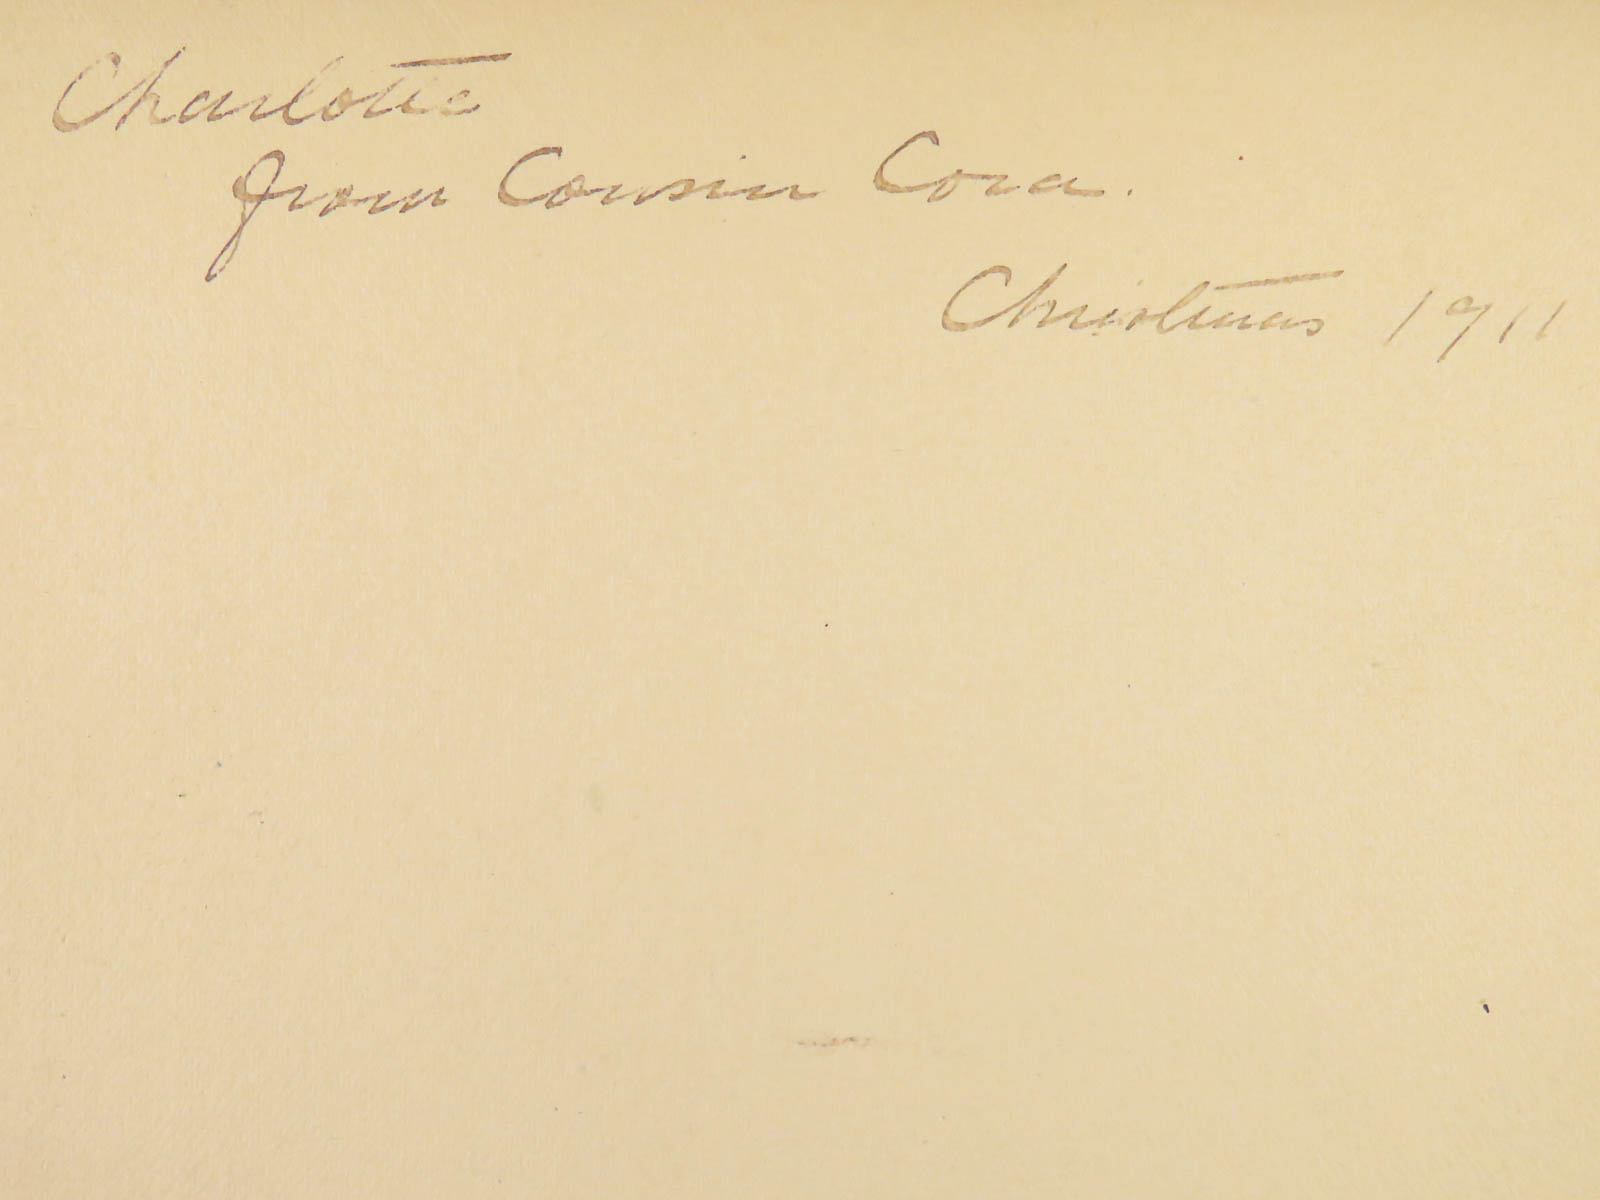 Charlotte
from Cousin Cora.
Christmas 1911